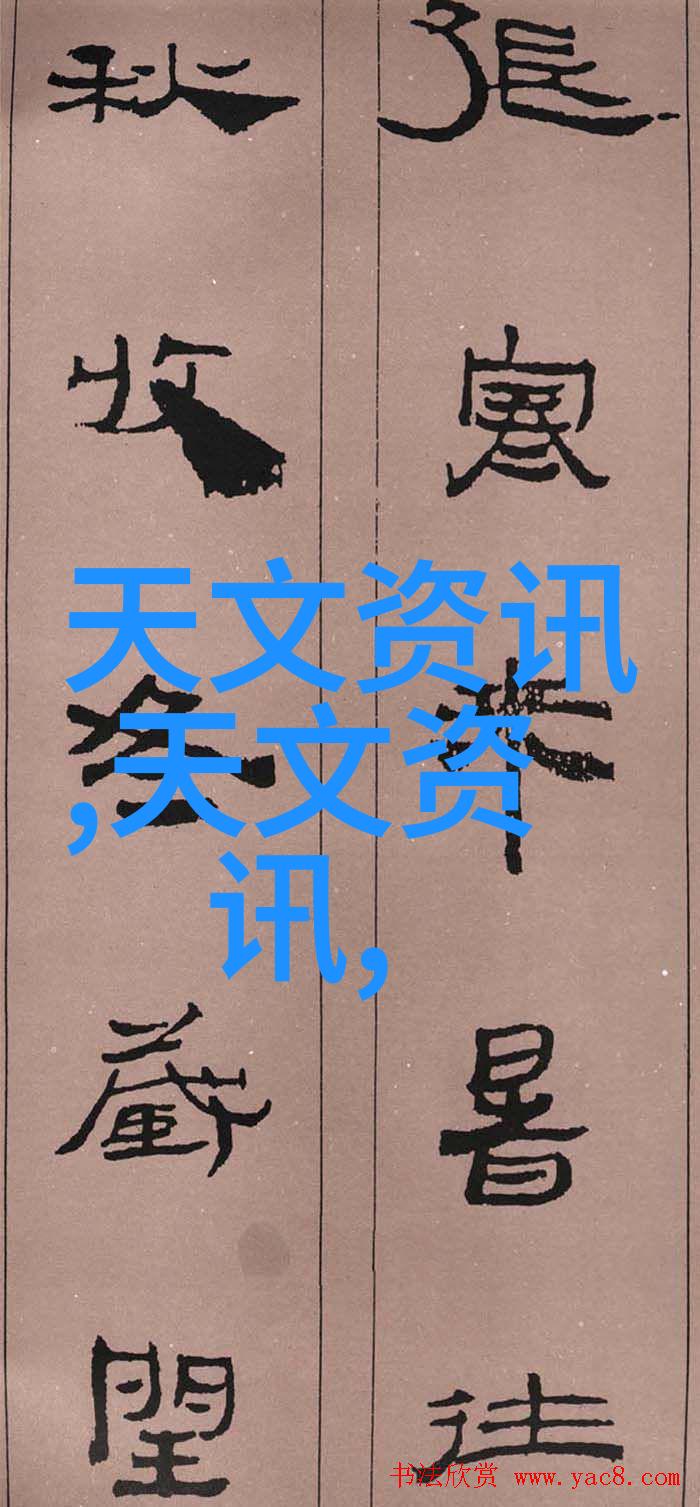 張寒来暑往
秋收冬藏閏
天文资讯
,天文资
讯,
书法欣赏 www.yac8.com